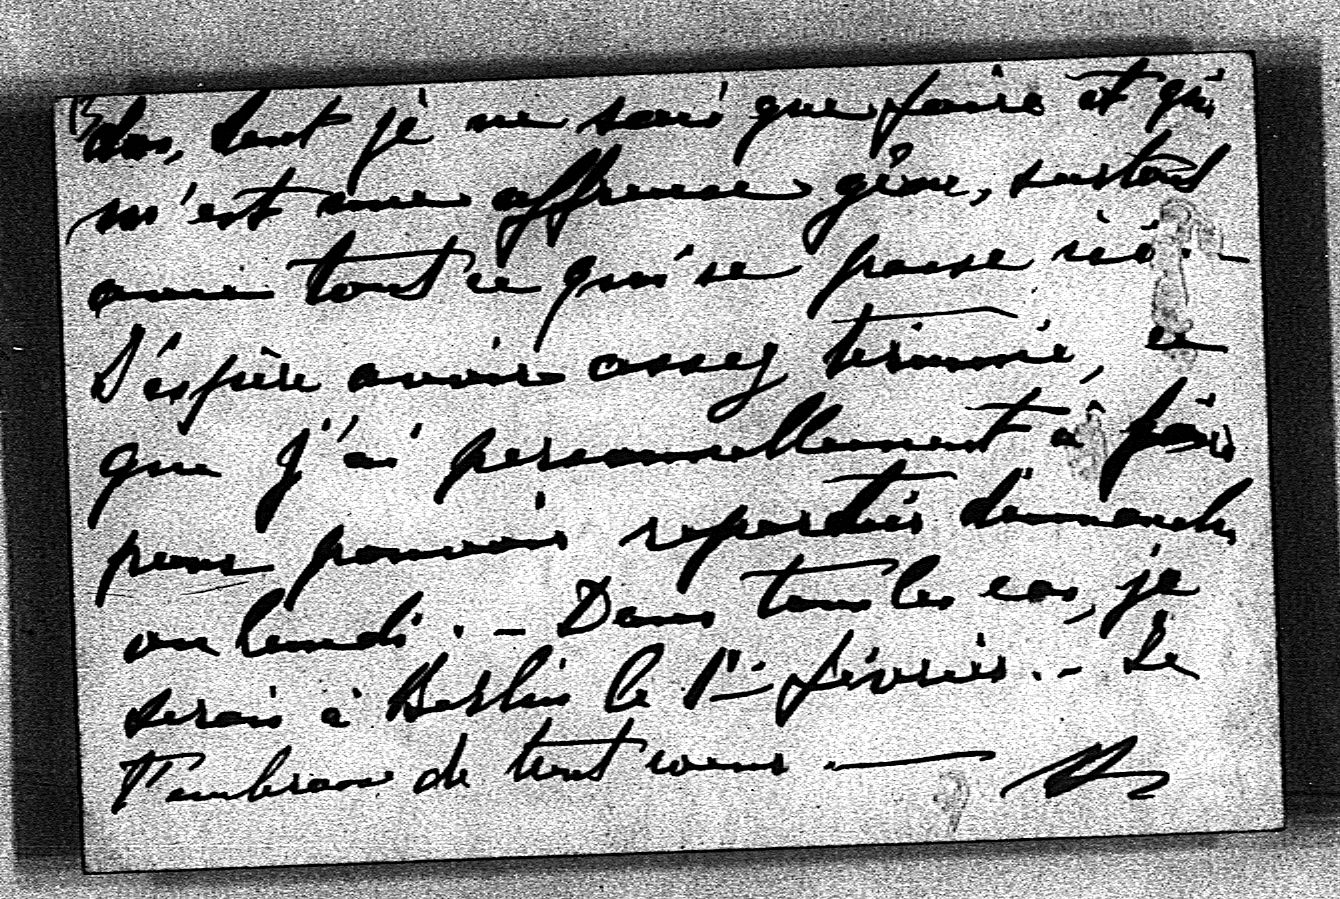 dos, dont je ne sais que faire et qui
m'est une affreuse gêne, surtout
avec tout ce qui se passe ici. —
J'espère avoir assez terminé, ce
que j'ai personnellement à faire
pour pouvoir repartir dimanche
ou lundi. — Dans tous les cas, je
serai à Berlin le 1er février. — Je
t'embrasse de tout coeur. —